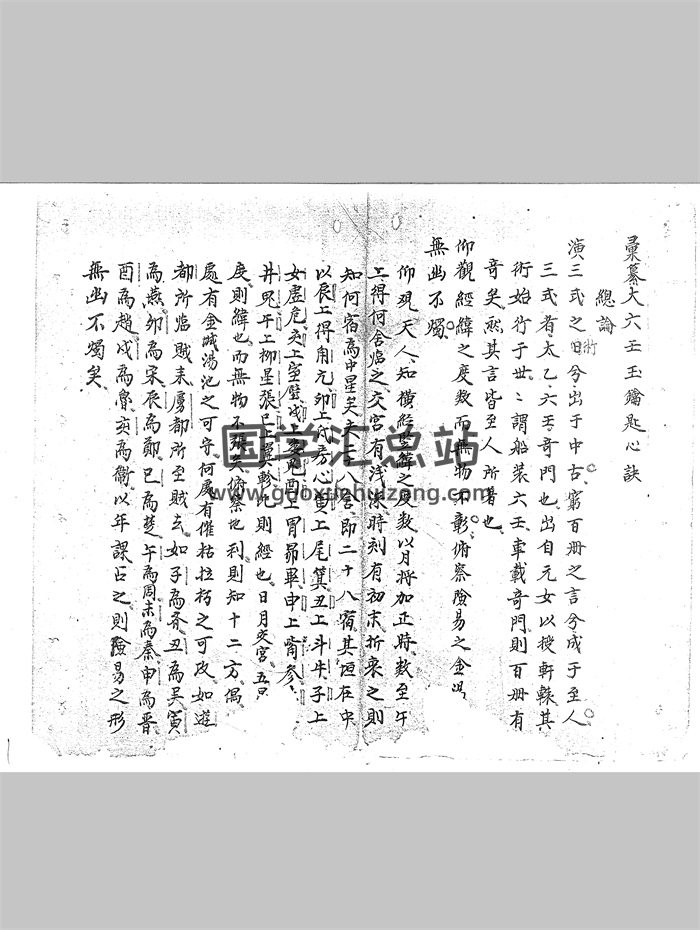 彙纂大六壬玉鑰匙心訣
總論
演三式之術兮出于中古窮百冊之言兮成于至人
三式者太乙六壬奇門也出自元女以授軒轅其
術始行于世世謂船裝六壬車載奇門則百冊有
奇矣然其言皆至人所著也
仰觀經緯之度數而無物不彰俯察險易之
無幽不燭
仰观天人知橫經豎緯之度数以月将加正時数至午
上得何舍临之交宮有浅深時刻有初末折衷之則
知何宿為中星矣夫二十八舍即二十八宿其恒在中
以辰上得角亢卯上氐房心寅上尾箕丑上斗牛子上
女虛危亥上室壁戌上奎婁酉上胃昴畢申上觜參
井鬼午上柳星張巳上翼軫此則經也日月交宮五
度則緯也而無物不彰矣俯察地利則知十二方隅
處有金城湯池之可守何處有催枯拉朽之可攻如遊
都所临贼来魯都所至贼去如子為齐丑為吴寅
為燕卯為宋辰為鄭巳為楚午為周未為秦申為晋
酉為趙戌為魯亥為衛以年課占之則險易之形
無幽不燭矣
国学汇总站
www.guoxuehuizong.com